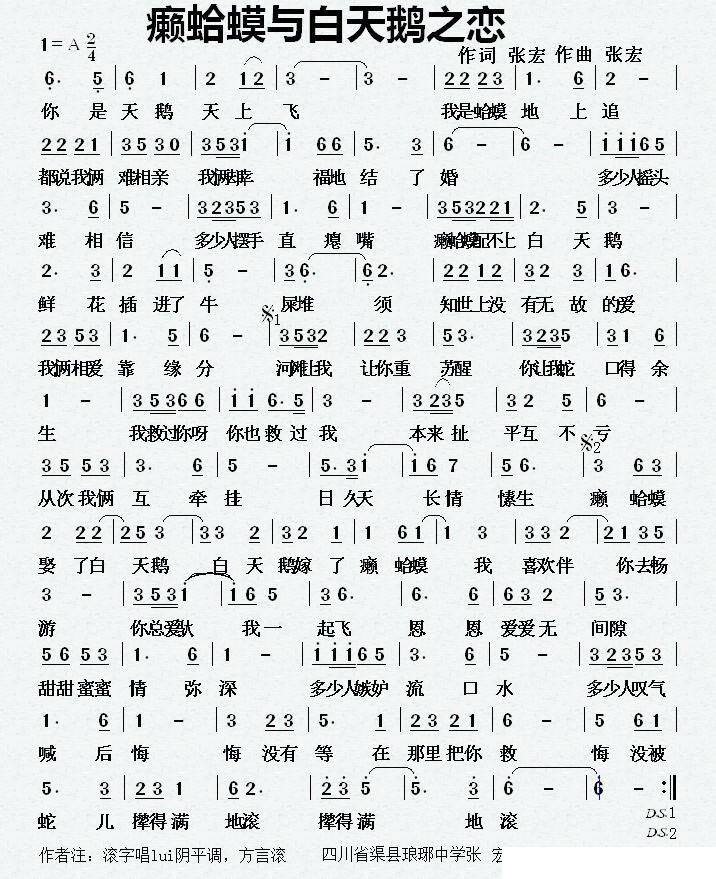 癞蛤蟆与白天鹅之恋
1=A 2/4
作词 张宏 作曲 张宏
6. 5 | 6 1 | 2 12 | 3 - | 3 - | 22 23 | 1. 6 | 2 - |
你 是 天 鹅 天 上 飞 我是蛤蟆 地 上 追
22 21 | 35 30 | 3531 | 1 66 | 5. 3 | 6 - | 6 - | 11165 |
都说我俩 难相亲 我俩 福地 结 了 婚 多少人摇头
3. 6 | 5 - | 32353 | 1. 6 | 1 - | 353221 | 2. 5 | 3 - |
难 相 信 多少人摆手 直 瘪 嘴 癞蛤蟆配不上 白 天 鹅
2. 3 | 2 11 | 5 - | 36. | 62. | 22 12 | 32 3 | 16. |
鲜 花 插 进了 牛 屎堆 须 知世上没 有无 故 的爱
23 53 | 1. 5 | 6 - | 3532 | 22 3 | 53. | 3235 | 31 6 |
我俩相爱 靠 缘 分 河滩让我 让你重 苏醒 你让我蛇 口得 余
1 - | 35366 | 11 6.5 | 3 - | 3235 | 32 5 | 6 - |
生 我救过你呀 你也 救 过 我 本来 扯 平互 不 亏
35 53 | 3. 6 | 5 - | 5.31 | 16 7 | 56. | 3 63 |
从次 我俩 互 牵 挂 日 久天 长 情 愫生 癞 蛤蟆
2 22 | 253 | 33 2 | 32 1 | 1 61 | 1 3 | 33 2 | 21 35 |
娶 了白 天鹅 白 天 鹅嫁 了 癞 蛤蟆 我 喜欢伴 你去畅
3 - | 3531 | 16 5 | 36. | 6. 6 | 63 2 | 53. |
游 你总爱 我 一 起飞 恩 恩 爱爱 无 间隙
56 53 | 1. 6 | 1 - | 11165 | 3. 6 | 5 - | 32353 |
甜甜 蜜蜜 情 弥 深 多少人嫉妒 流 口 水 多少人叹气
1. 6 | 1 - | 3 23 | 5. 1 | 23 21 | 6 - | 5 61 |
喊 后 悔 悔 没有 等 在 那里 把你 救 悔 没被
5. 3 | 23 1 | 62. | 23 5 | 5. 3 | 6 - | 6 - :|
蛇 儿 撵得 满 地滚 撵得 满 地 滚
D.S.1
D.S.2
作者注：滚字唱lui阴平调，方言滚 四川省渠县琅琊中学张 宏